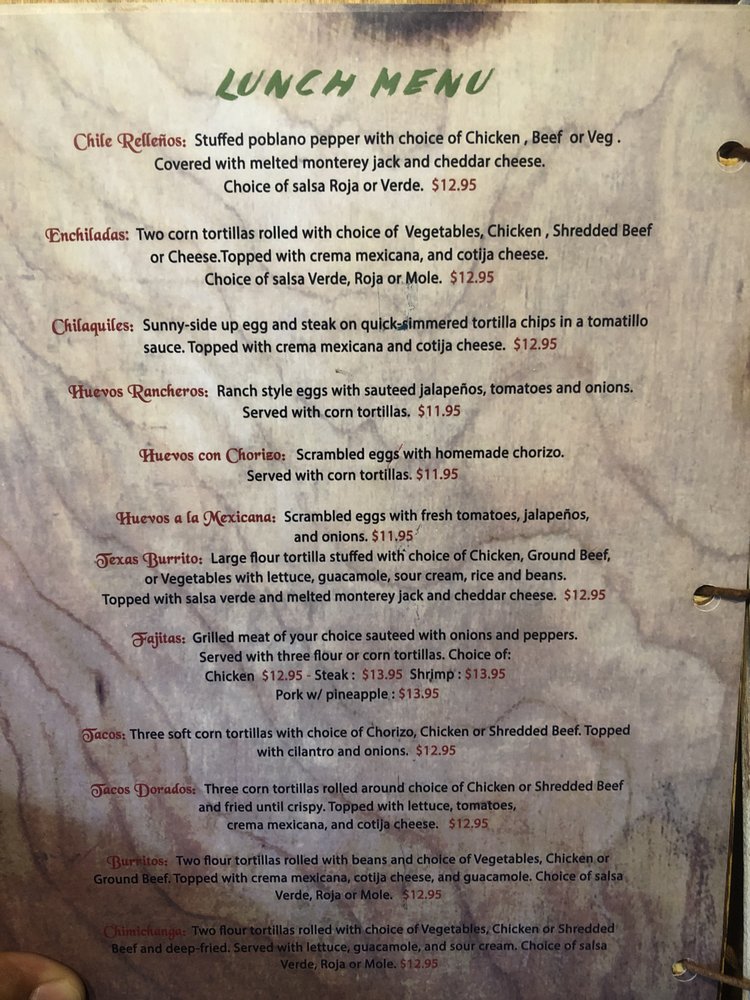 LUNCH MENU
Chile Relleños: Stuffed poblano pepper with choice of Chicken , Beef or Veg .
Covered with melted monterey jack and cheddar cheese.
Choice of salsa Roja or Verde. $12.95
Enchiladas: Two corn tortillas rolled with choice of Vegetables, Chicken , Shredded Beef
or Cheese.Topped with crema mexicana, and cotija cheese.
Choice of salsa Verde, Roja or Mole. $12.95
Chilaquiles: Sunny-side up egg and steak on quick-simmered tortilla chips in a tomatillo
sauce. Topped with crema mexicana and cotija cheese. $12.95
Huevos Rancheros: Ranch style eggs with sauteed jalapeños, tomatoes and onions.
Served with corn tortillas. $11.95
Huevos con Chorizo: Scrambled eggs with homemade chorizo.
Served with corn tortillas. $11.95
Huevos a la Mexicana: Scrambled eggs with fresh tomatoes, jalapeños,
and onions. $11.95
Texas Burrito: Large flour tortilla stuffed with choice of Chicken, Ground Beef,
or Vegetables with lettuce, guacamole, sour cream, rice and beans.
Topped with salsa verde and melted monterey jack and cheddar cheese. $12.95
Fajitas: Grilled meat of your choice sauteed with onions and peppers.
Served with three flour or corn tortillas. Choice of:
Chicken $12.95 - Steak : $13.95 Shrimp : $13.95
Pork w/ pineapple : $13.95
Tacos: Three soft corn tortillas with choice of Chorizo, Chicken or Shredded Beef. Topped
with cilantro and onions. $12.95
Tacos Dorados: Three corn tortillas rolled around choice of Chicken or Shredded Beef
and fried until crispy. Topped with lettuce, tomatoes,
crema mexicana, and cotija cheese. $12.95
Burritos: Two flour tortillas rolled with beans and choice of Vegetables, Chicken or
Ground Beef. Topped with crema mexicana, cotija cheese, and guacamole. Choice of salsa
Verde, Roja or Mole. $12.95
Chimichanga: Two flour tortillas rolled with choice of Vegetables, Chicken or Shredded
Beef and deep-fried. Served with lettuce, guacamole, and sour cream. Choice of salsa
Verde, Roja or Mole. $12.95